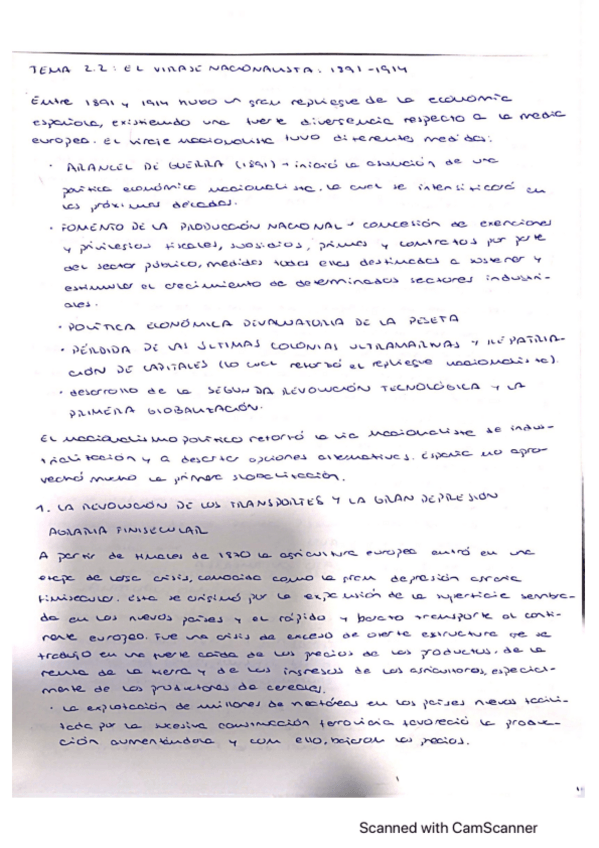 TEMA 2.2: EL VIRAJE NACIONALISTA: 1891-1914
Entre 1891 y 1914 hubo un gran repliegue de la economía
española, existiendo una fuerte divergencia respecto a la media
europea. El viraje nacionalista tuvo diferentes medidas:
· ARANCEL DE GUERRA (1891) → inició la asunción de una
política económica nacionalista, la cual se intensificará en
las próximas décadas.
· FOMENTO DE LA PRODUCCIÓN NACIONAL → concesión de exenciones
y privilegios fiscales, subsidios, primas y contratos por parte
del sector público, medidas todas ellas destinadas a sostener y
estimular el crecimiento de determinados sectores industri-
ales.
· POLÍTICA ECONÓMICA DEVALUATORIA DE LA PESETA
· PÉRDIDA DE LAS ÚLTIMAS COLONIAS ULTRAMARINAS Y REPATRIA-
CIÓN DE CAPITALES (lo cual reforzó el repliegue nacionalista).
· desarrollo de la SEGUNDA REVOLUCIÓN TECNOLÓGICA Y LA
PRIMERA GLOBALIZACIÓN.
El nacionalismo político reforzó la vía nacionalista de indus-
trialización y a descartar opciones alternativas. España no apro-
vechó mucho la primera globalización.
1. LA REVOLUCIÓN DE LOS TRANSPORTES Y LA GRAN DEPRESIÓN
AGRARIA FINISECULAR
A partir de finales de 1870 la agricultura europea entró en una
etapa de larga crisis, conocida como la gran depresión agraria
finisecular. Ésta se originó por la expansión de la superficie sembra-
da en los nuevos países y el rápido y barato transporte al conti-
nente europeo. Fue una crisis de exceso de oferta estructura que se
tradujo en una fuerte caída de los precios de los productos, de la
renta de la tierra y de los ingresos de los agricultores, especial-
mente de los productores de cereales.
· La explotación de millones de hectáreas en los países nuevos facili-
tada por la masiva construcción ferroviaria favoreció la produc-
ción aumentándola y con ello, bajaron los precios.
Scanned with CamScanner